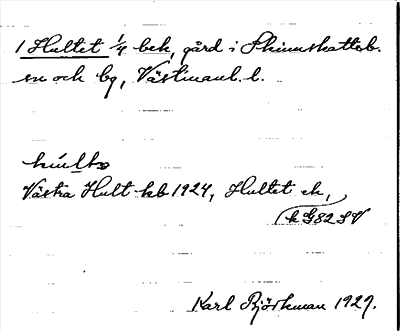 1 Hultet 1/4 bek, gård i Skinnskatteb.
sn och bg, Västmanl. l.
húlto
Västra Hult kb 1924, Hultet ek,
k G82 SV
Karl Björkman 1927.